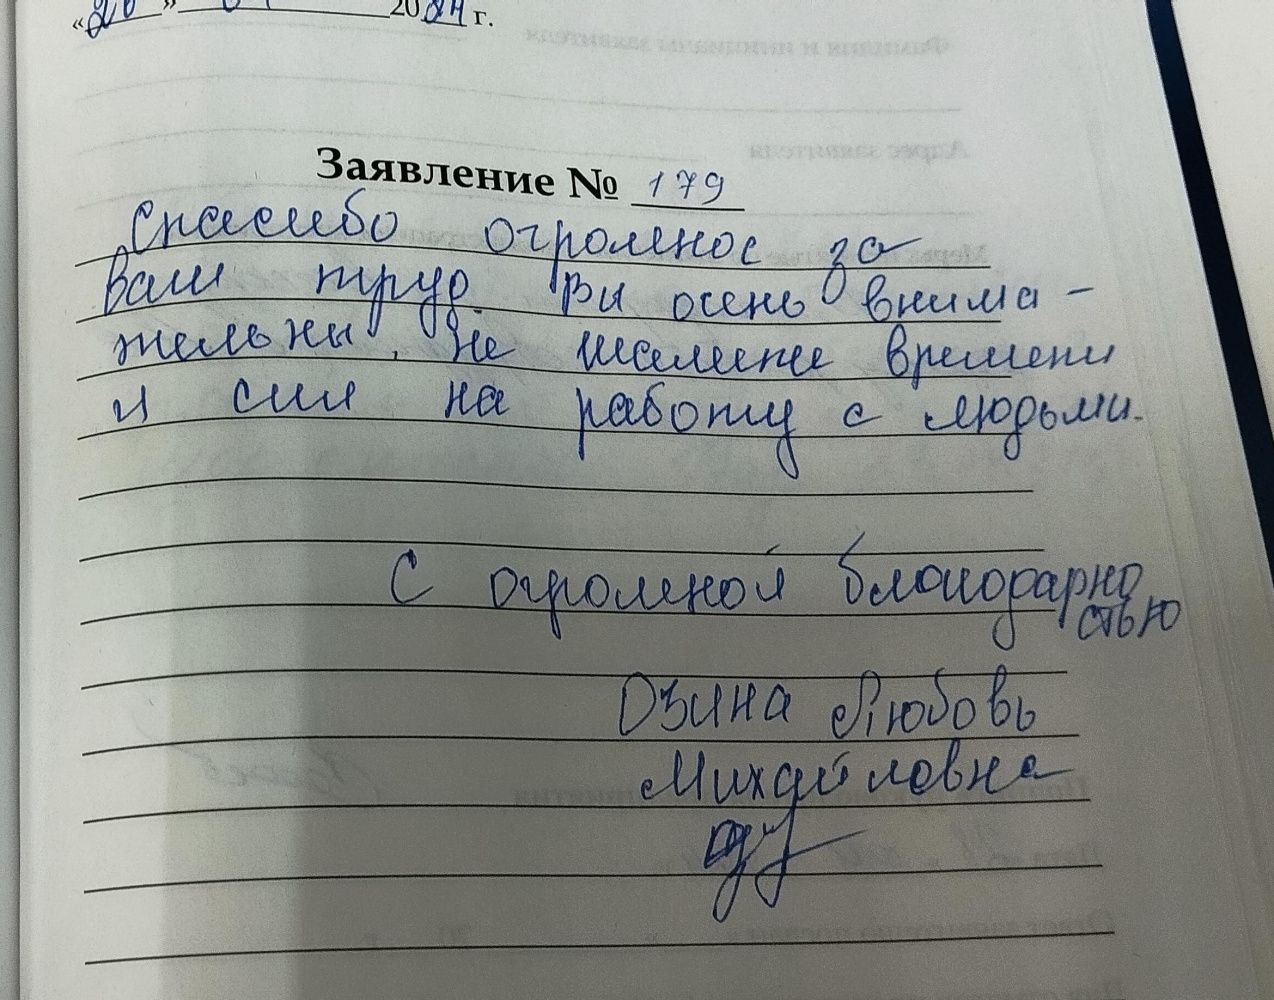 «20» 2024 г.
Заявление № 179
Спасибо огромное за
Ваш труд. Вы очень внима-
тельны, не жалеете времени
и сил на работу с людьми.
С огромной благодарно
стью
Дзина Любовь
Михайловна